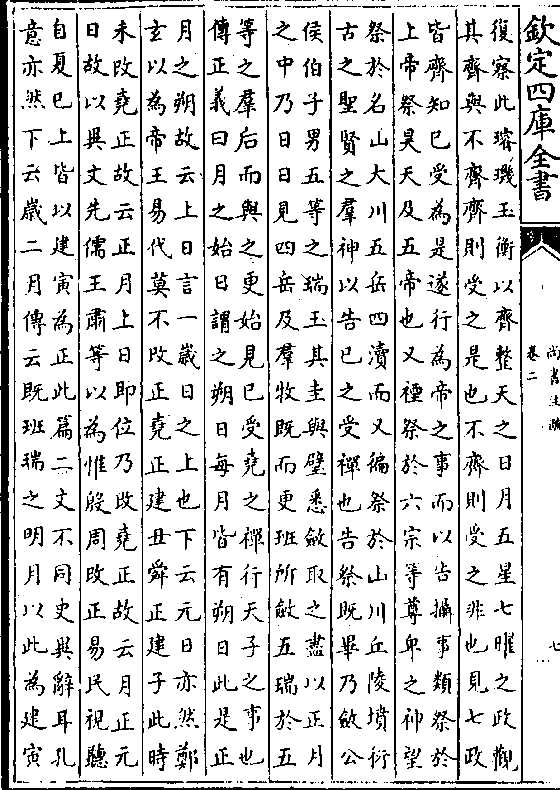 欽定四庫全書
尚書注疏
卷二
七
復察此璿璣玉衡以齊整天之日月五星七曜之政觀
其齊與不齊齊則受之是也不齊則受之非也見七政
皆齊知已受為是遂行為帝之事而以告攝事類祭於
上帝祭昊天及五帝也又禋祭於六宗等尊卑之神望
祭於名山大川五岳四瀆而又徧祭於山川丘陵墳衍
古之聖賢之羣神以告已之受禪也告祭既畢乃斂公
侯伯子男五等之瑞玉其圭與璧悉斂取之盡以正月
之中乃日日見四岳及羣牧既而更班所斂五瑞於五
等之羣后而與之更始見已受堯之禪行天子之事也
傳正義曰月之始日謂之朔日每月皆有朔日此是正
月之朔故云上日言一歲日之上也下云元日亦然鄭
玄以為帝王易代莫不改正堯正建丑舜正建子此時
未改堯正故云正月上日即位乃改堯正故云月正元
日故以異文先儒王肅等以為惟殷周改正易民視聽
自夏已上皆以建寅為正此篇二文不同史異辭耳孔
意亦然下云歲二月傳云既班瑞之明月以此為建寅